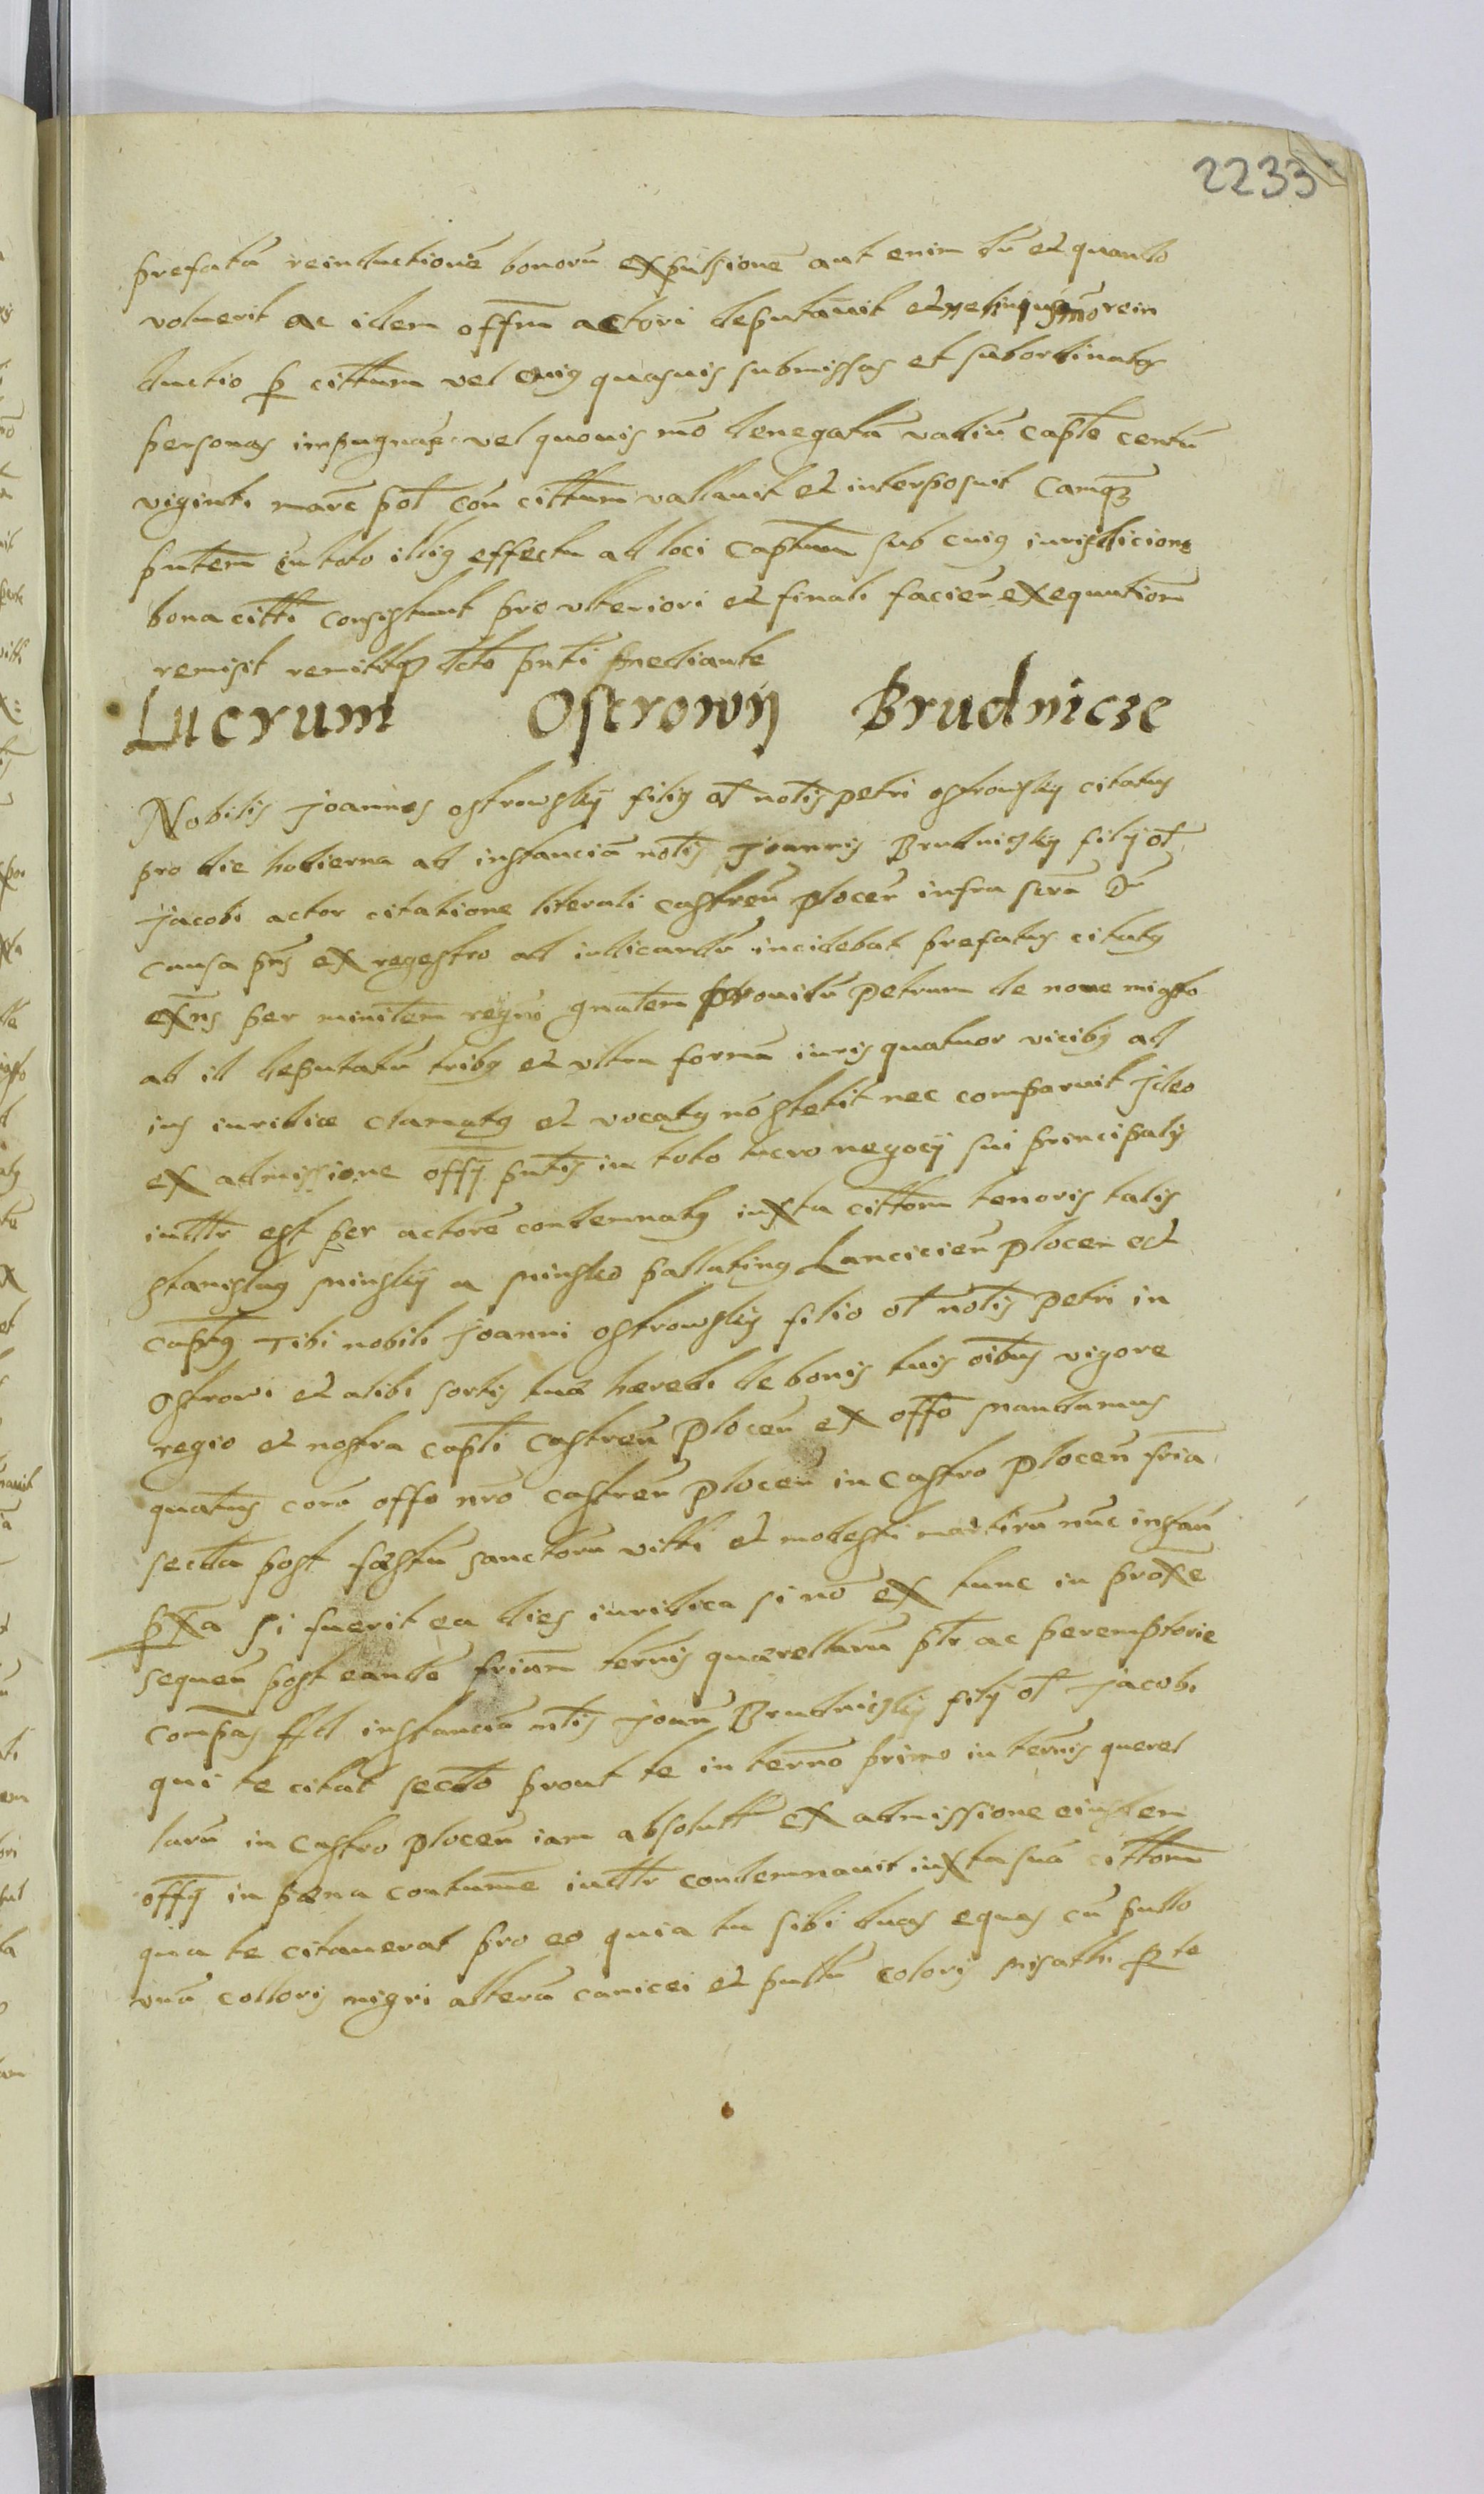 2233
prefatã reinductionẽ bonorũ expulsionẽ aut enim dũ et quando
voluerit ac idem offm actori deputavit et rein
ductio p citum vel cuius quasuis submissas et subordinatas
personas vel quouis mõ denegatã vadiũ caple centũ
viginti marc pol con cittum vallauit et interposuit camq3
pntem in toto illius effectu ad loci captum sub cuius iurisdicione
bona citti consistunt pro vlteriori et finali facien exequution
remisit remittitq3 dcto pnti mediante
Lucrum Ostrowij Brudnicze
Nobilis Joannes ostrowskij filius ol nolis petri ostrowsky citatus
pro die hodierna ad instanciã nolis Joannis Brudniczky filij ol
Jacobi actor citatione literali castren plocen infra scra Dũ
causa pns ex regestro ad iudicandũ incidebat prefatus citatus
exns per minitem regni gnatem prouidũ petrum de noue miasto
ad id deputatũ tribus et vltra formã iuris quatuor vicibus ad
ius iuridice clamatus et vocatus nõ stetit nec comparuit Jdeo
ex admissione offij pntis in toto lucro negocij sui principalis
indtr est per actorẽ condemnatus iuxta cittom tenoris talis
stanislaus minskij a minsko pallatinus Lancicien plocen et
captus Tibi nobili Joanni ostrowskij filio ol nolis petri in
Ostrowi et alibi sortis tuæ hæredi de bonis tuis oibus vigore
regio et nostra capti castren plocen ex offo mandamus
quatenus corã offo nro castren plocen in castro plocen fria
secda post fæstũ sanctorũ vitti et modesti martirũ nũc instan
pxa si fuerit ea dies iuridica si nõ ex tunc in proxe
sequen post eandẽ friam ternis quærellarũ ptr ac peremptorie
compas Ad instanciã nlis Joann Brudniczkij filij ol Jacobi
qui te citat secdo prout te in terno primo in ternis querel
larũ in castro plocen iam absolutt ex admissione eiusdem
offij in pæna contume indtr condemnauit iuxta suã cittom
qua te citauerat pro eo quia tu sibi duas equas cũ pullo
vnã colloris nigri alterã canicei et pullũ coloris misatti p te